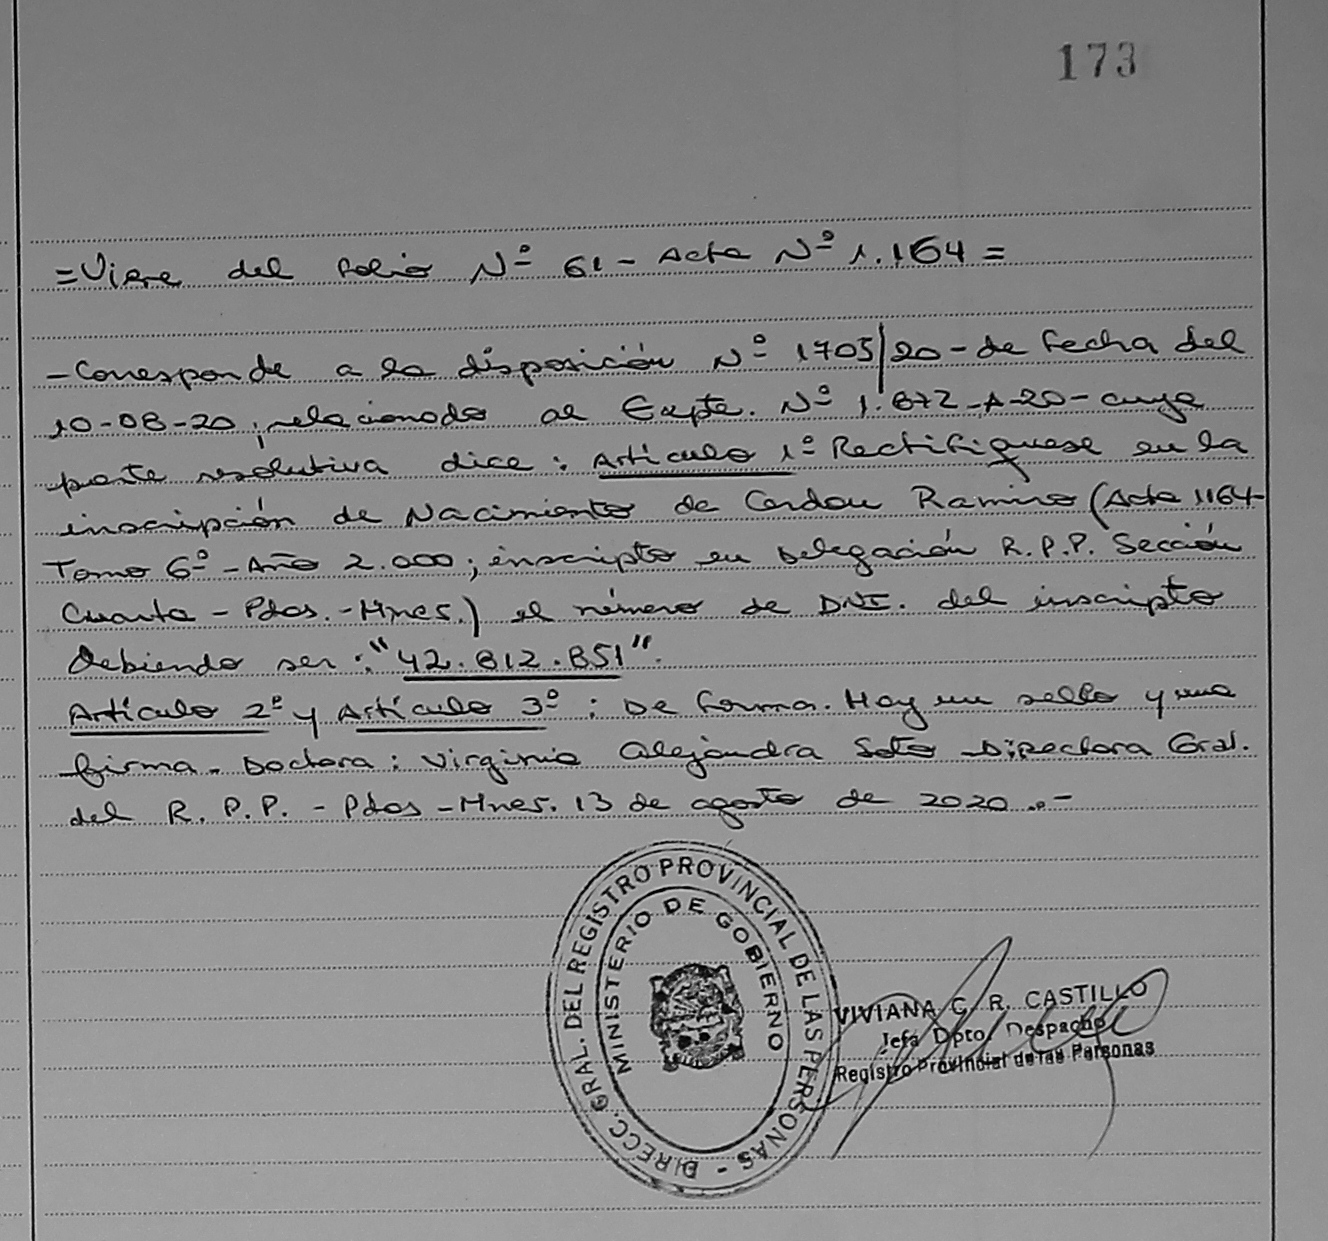 173
=Viene del folio Nº 61 - Acta Nº 1.164 =
- Corresponde a la disposición Nº 1705/20 - de fecha del
10-08-20, relacionado al Expte. Nº 1.672-A-20 - cuya
parte resolutiva dice: Artículo 1º Rectifiquese en la
inscripción de Nacimiento de Cardou Ramiro (Acta 1164-
Tomo 6º - Año 2.000; inscripto en Delegación R.P.P. Sección
Cuarta - Pdas. - Mnes.) el número de DNI. del inscripto
debiendo ser: "42.812.851".
Artículo 2º y Artículo 3º: De forma. Hay un sello y una
firma. Doctora: Virginia Alejandra Soto Directora Gral.
del R.P.P. - Pdas - Mnes. 13 de agosto de 2020.-
DIRECC. GRAL. DEL REGISTRO PROVINCIAL DE LAS PERSONAS -
MINISTERIO DE GOBIERNO
VIVIANA G. R. CASTILLO
Jefa Dpto. Despacho
Registro Provincial de las Personas